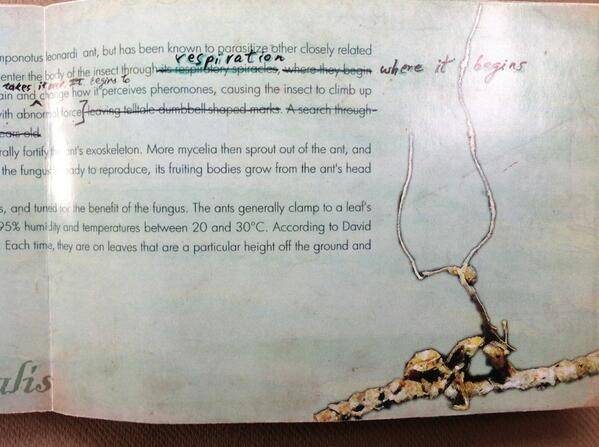 mponotus leonardi ant, but has been known to parasitize other closely related
respiration
enter the body of the insect through its respiratory spiracles, where they begin where it begins
takes it over begins to
ain and change how it perceives pheromones, causing the insect to climb up
with abnormal force] leaving telltale dumbbell shaped marks. A search through-
ears old.
rally fortify the ant's exoskeleton. More mycelia then sprout out of the ant, and
the fungus ready to reproduce, its fruiting bodies grow from the ant's head
s, and tuned for the benefit of the fungus. The ants generally clamp to a leaf's
95% humidity and temperatures between 20 and 30°C. According to David
. Each time, they are on leaves that are a particular height off the ground and
alis